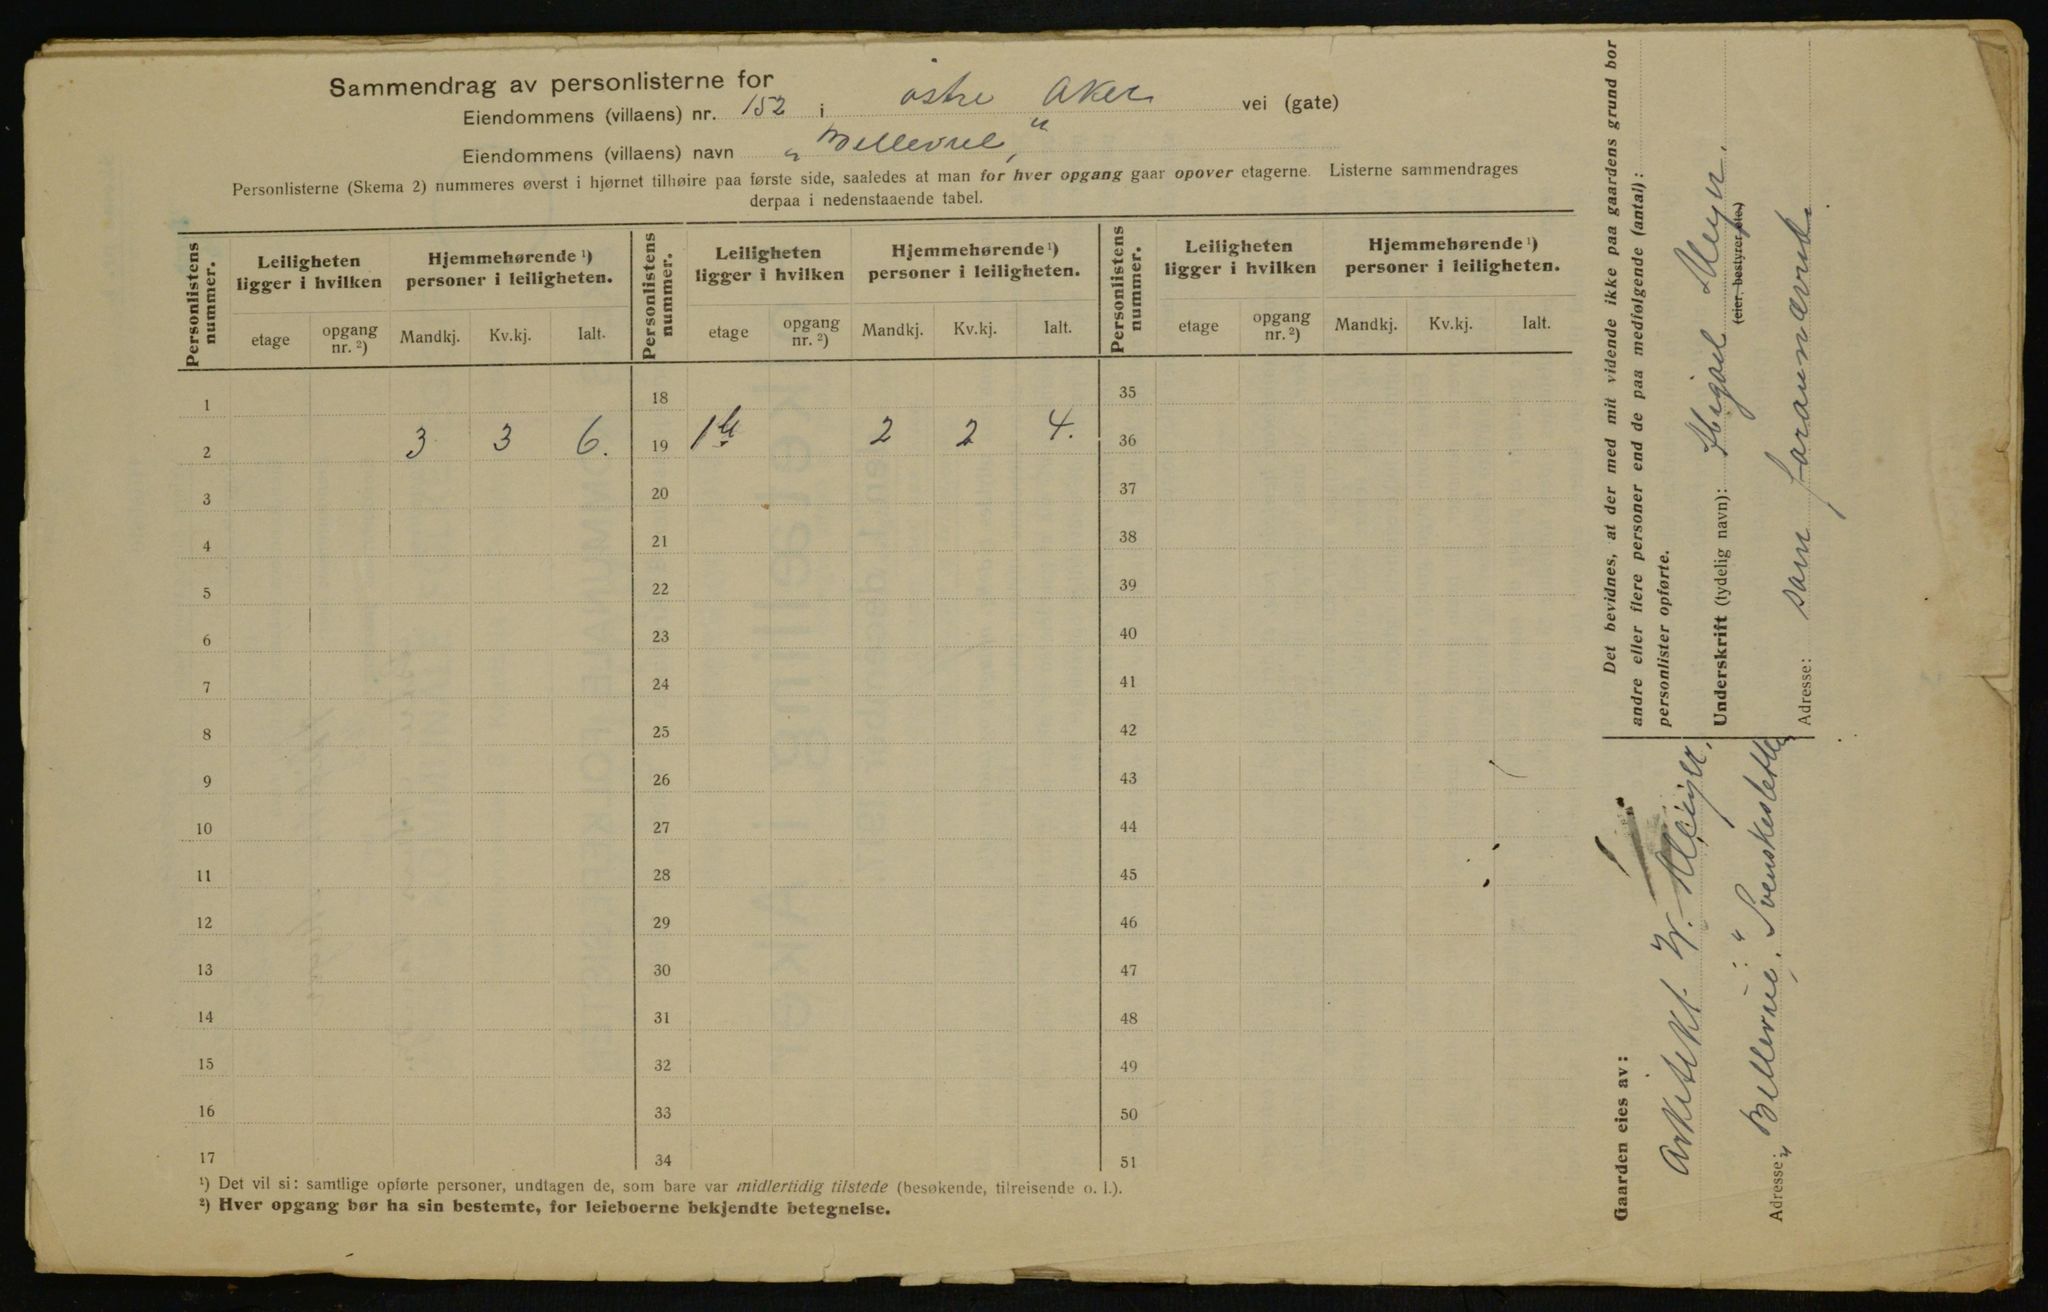 Sammendrag av personlisterne for
Eiendommens (villaens) nr. 152 i østre Aker vei (gate)
Eiendommens (villaens) navn „Bellevue,"
Personlisterne (Skema 2) nummeres øverst i hjørnet tilhøire paa første side, saaledes at man for hver opgang gaar opover etagerne. Listerne sammendrages
derpaa i nedenstaaende tabel.
Personlistens nummer. Leiligheten ligger i hvilken Hjemmehørende ¹) personer i leiligheten. Personlistens nummer. Leiligheten ligger i hvilken Hjemmehørende ¹) personer i leiligheten. Personlistens nummer. Leiligheten ligger i hvilken Hjemmehørende ¹) personer i leiligheten.
etage opgang nr. ²) Mandkj. Kv.kj. Ialt. etage opgang nr. ²) Mandkj. Kv.kj. Ialt. etage opgang nr. ²) Mandkj. Kv.kj. Ialt.
1 18 35
2 3 3 6. 19 2 2 4. 36
3 20 37
4 21 38
5 22 39
6 23 40
7 24 41
8 25 42
9 26 43
10 27 44
11 28 45
12 29 46
13 30 47
14 31 48
15 32 49
16 33 50
17 34 51
¹) Det vil si: samtlige opførte personer, undtagen de, som bare var midlertidig tilstede (besøkende, tilreisende o. l.).
²) Hver opgang bør ha sin bestemte, for leieboerne bekjendte betegnelse.
Det bevidnes, at der med mit vidende ikke paa gaardens grund bor
andre eller flere personer end de paa medfølgende (antal):
personlister opførte.
Underskrift (tydelig navn): Abigael Meyer.
(eier, bestyrer etc.)
Adresse: som foran nævnt.
Gaarden eies av:
Arkitekt. W. Meyer.
Adresse: „Bellevue". Svenskesletten